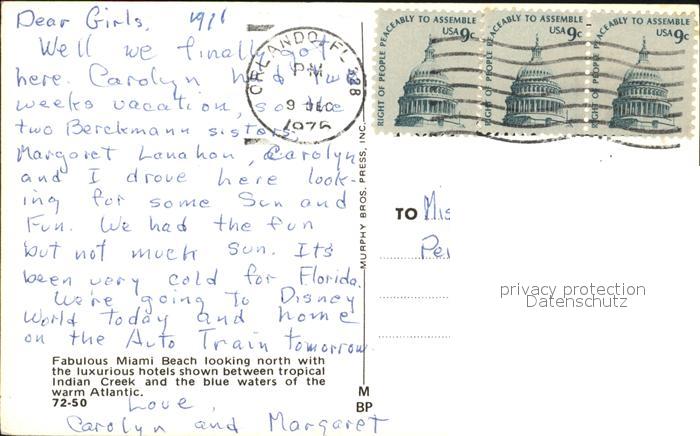 Dear Girls,
Well we finally got
here. Carolyn had two
weeks vacation, so the
two Berckmann sisters,
Margaret Lanahan, Carolyn
and I drove here look-
ing for some Sun and
Fun. We had the fun
but not much Sun. It's
been very cold for Florida.
We're going to Disney
World today and home
on the Auto Train tomorrow.
Fabulous Miami Beach looking north with
the luxurious hotels shown between tropical
Indian Creek and the blue waters of the
warm Atlantic.
72-50
Love,
Carolyn and Margaret
ORLANDO, FL 328
PM
9 DEC
1975
MURPHY BROS. PRESS, INC.
M
BP
RIGHT OF PEOPLE PEACEABLY TO ASSEMBLE
USA 9c
RIGHT OF PEOPLE PEACEABLY TO ASSEMBLE
USA 9c
RIGHT OF PEOPLE PEACEABLY TO ASSEMBLE
USA 9c
TO Mis
Pe
privacy protection
Datenschutz